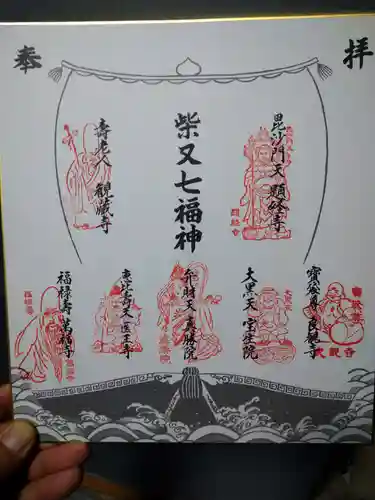 奉拝
毘沙門天 題経寺
柴又七福神
寿老人 観蔵寺
宝袋尊 良観寺
大黒天 宝生院
弁財天 真勝院
恵比寿天 医王寺
福禄寿 萬福寺